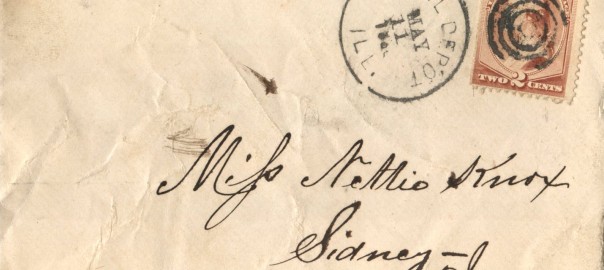 L DEPOT
MAY
11
ILL.
TWO 2 CENTS
Miss Nettie Knox
Sidney